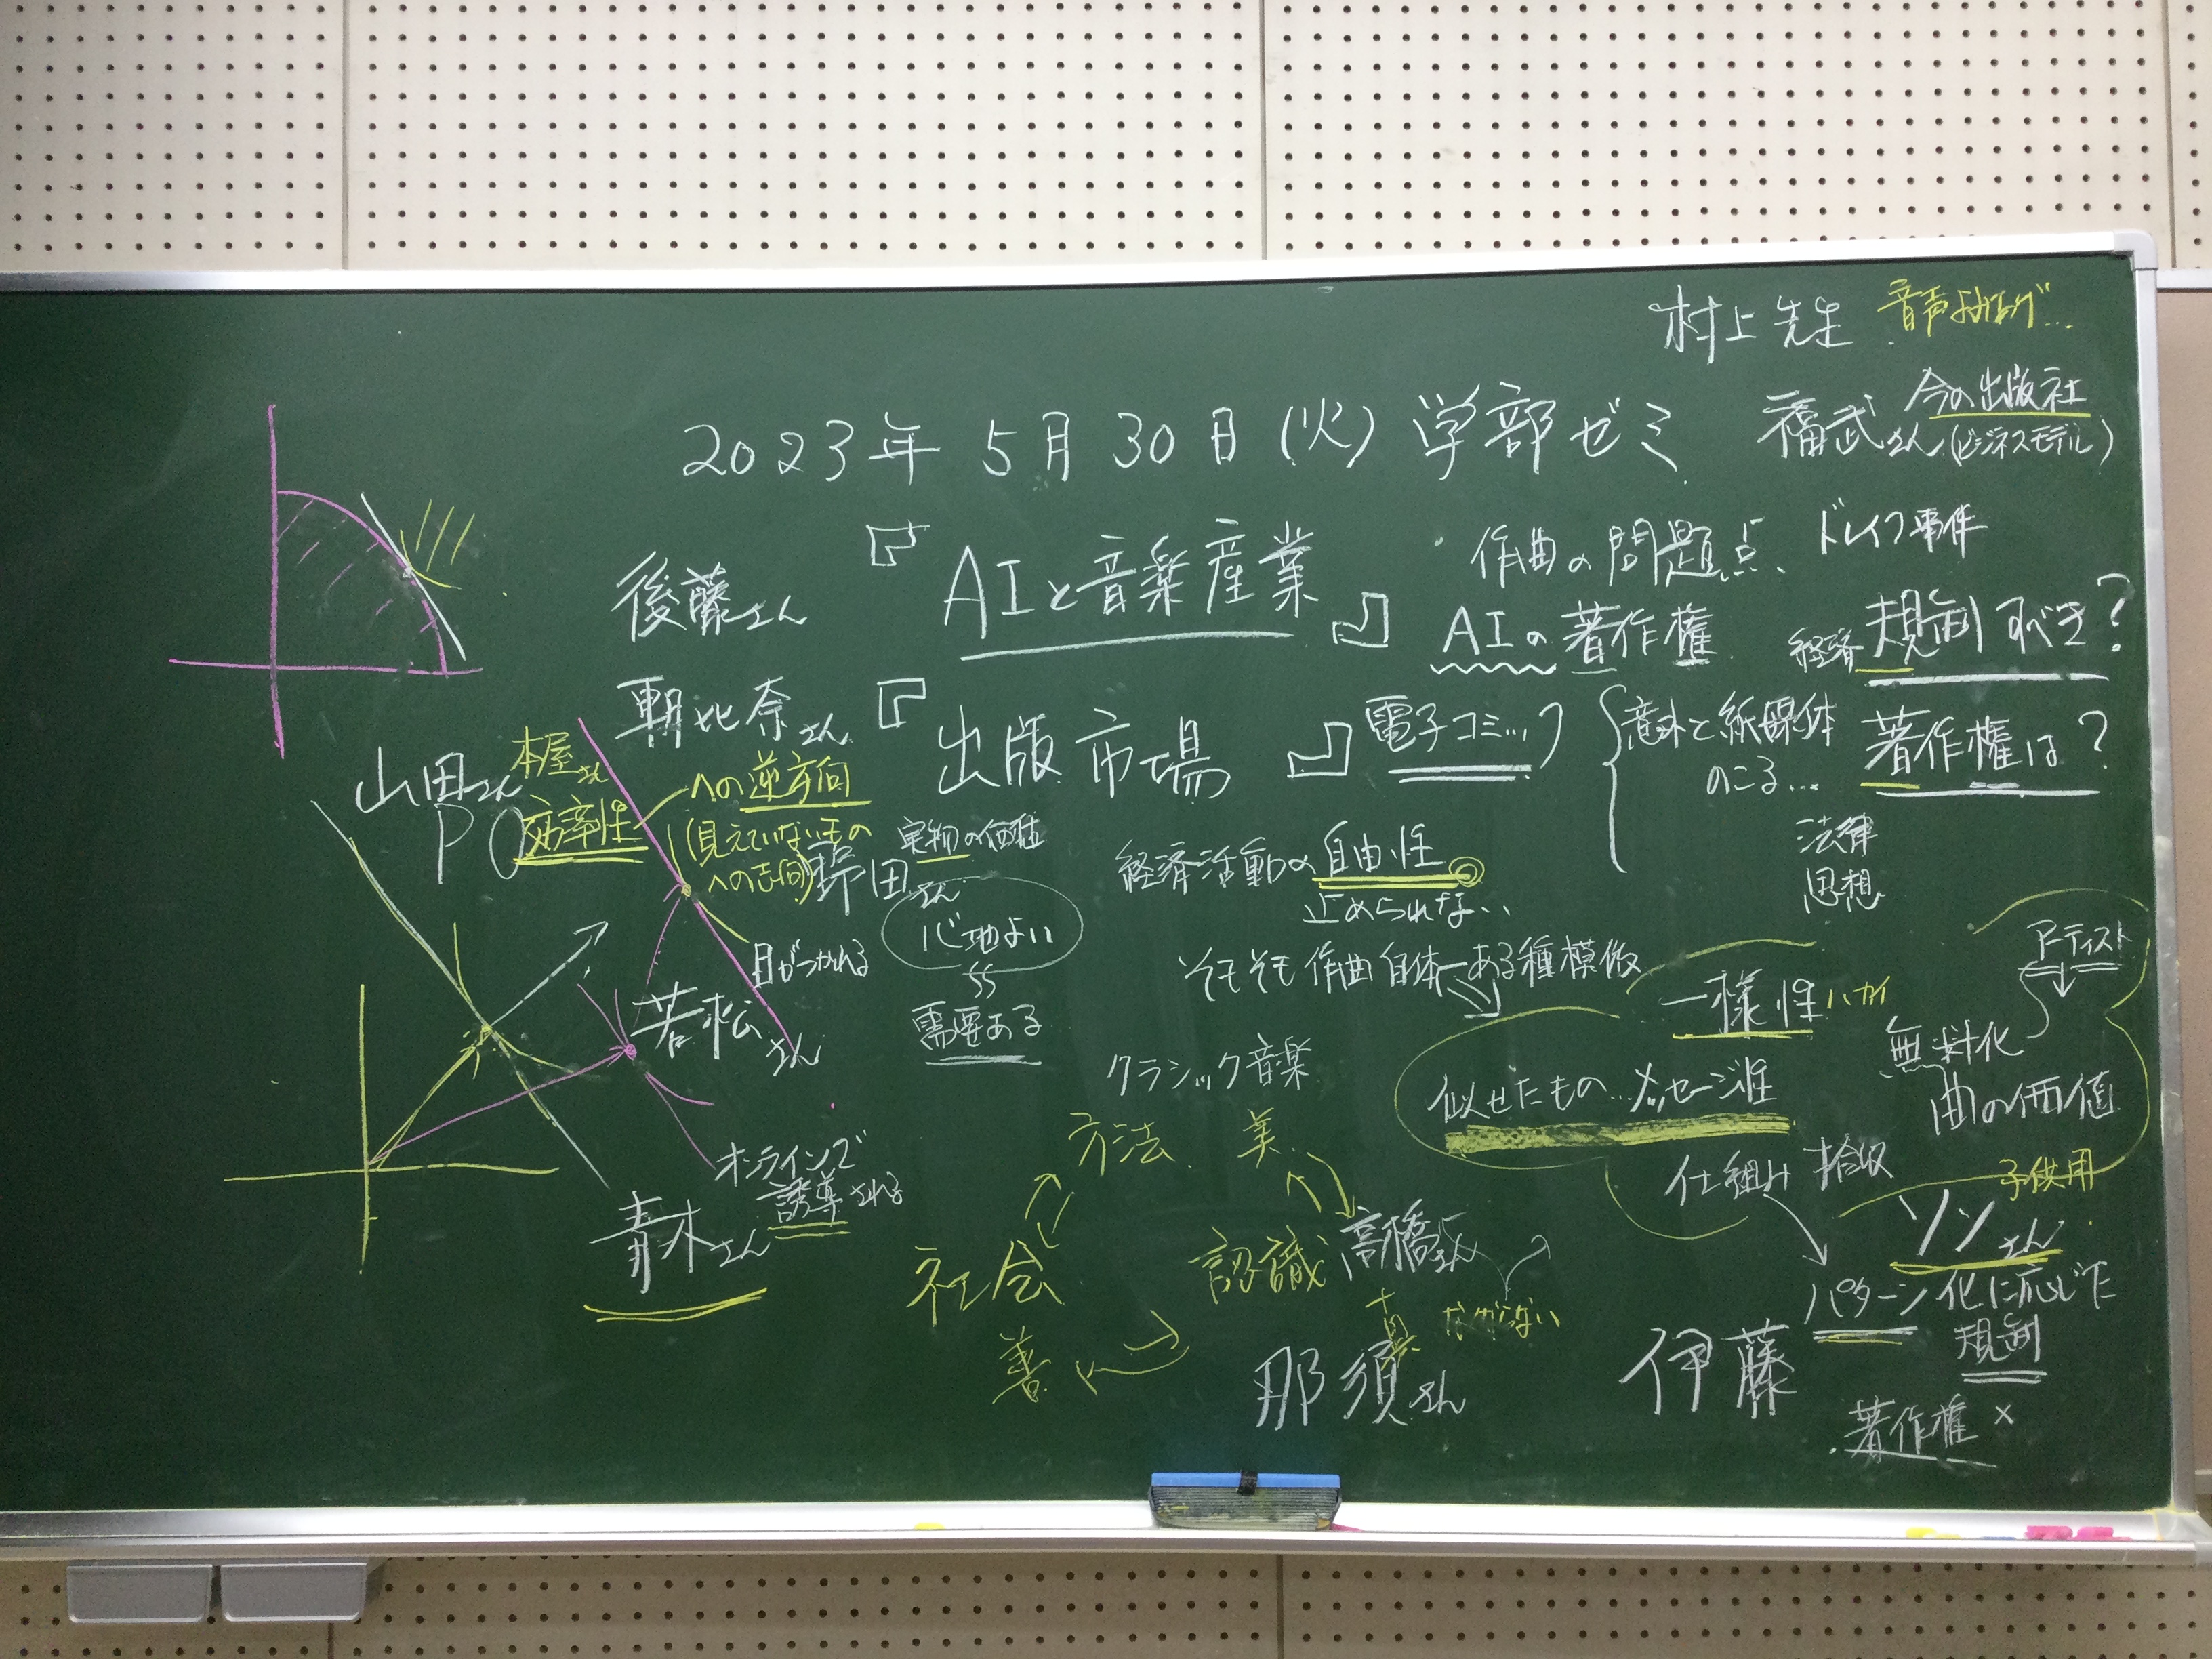 村上先生 音声よみあげ…
2023年 5月 30日 (火) 学部ゼミ
福武さん 今の出版社
(ビジネスモデル)
後藤さん 『AIと音楽産業』
作曲の問題点、ドレイク事件
AIの著作権
経済 規制すべき?
朝比奈さん 『出版市場』 電子コミック
意外と紙媒体
のこる…
著作権は?
法律
思想
山田さん
本屋さん
効率性
への逆方向
(見えていないもの
への志向)
野田さん
実物の価値
心地よい
需要ある
経済活動の自由性
止められない
そもそも作曲自体ある種模倣
一様性 ハカイ
アーティスト
無料化
曲の価値
似せたもの…メッセージ性
目がつかれる
若松さん
クラシック音楽
方法 美
オンラインで
誘導される
青木さん
社会
認識
善
高橋さん
真
那須さん
仕組み
子供用
ソンさん
パターン化に応じた
規制
伊藤
著作権 ×